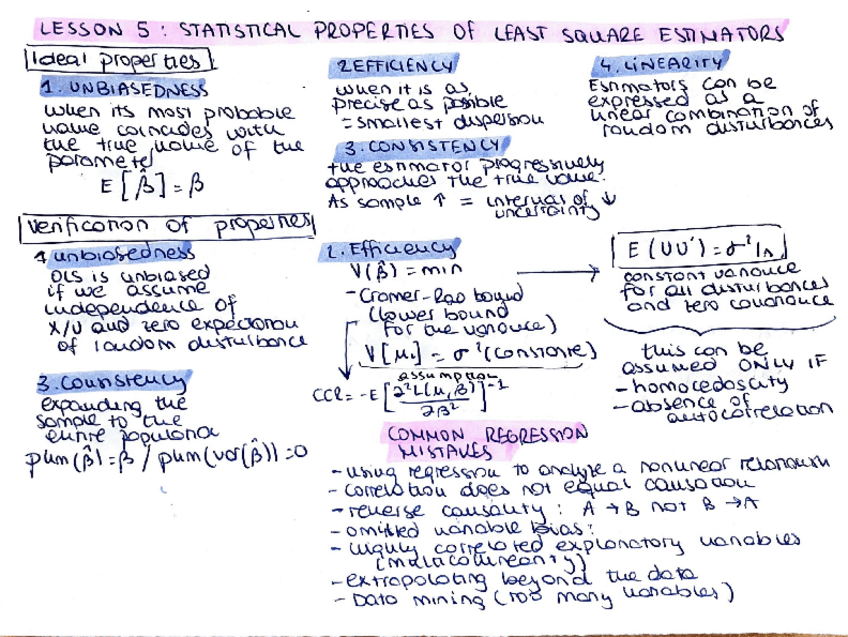 LESSON 5: STATISTICAL PROPERTIES OF LEAST SQUARE ESTIMATORS
Ideal properties
1. UNBIASEDNESS
when its most probable
value coincides with
the true value of the
parameter
E[β̂] = β
2 EFFICIENCY
when it is as
precise as possible
= smallest dispersion
3. CONSISTENCY
the estimator progressively
approaches the true value.
As sample ↑ = interval of ↓
uncertainty
4. LINEARITY
Estimators can be
expressed as a
linear combination of
random disturbances
Verification of properties
1 unbiasedness
OLS is unbiased
if we assume
independence of
X/U and zero expectation
of random disturbance
2. Efficiency
V(β̂) = min
- Cramer-Rao bound
(lower bound
for the variance)
V[μᵢ] = σ² (constante)
assumption
CCR = -E[∂²L(μ,β)/∂β²]⁻¹
E(UU') = σ²Iₙ
constant variance
for all disturbances
and zero covariance
this can be
assumed ONLY IF
- homocedascity
- absence of
autocorrelation
3. Consistency
expanding the
sample to the
entire population
plim(β̂) = β / plim(var(β̂)) = 0
COMMON REGRESSION
MISTAKES
- using regression to analyze a nonlinear relationship
- correlation does not equal causation
- reverse causality: A → B not B → A
- omitted variable bias:
- highly correlated explanatory variables
(multicolinearity)
- extrapolating beyond the data
- Data mining (too many variables)